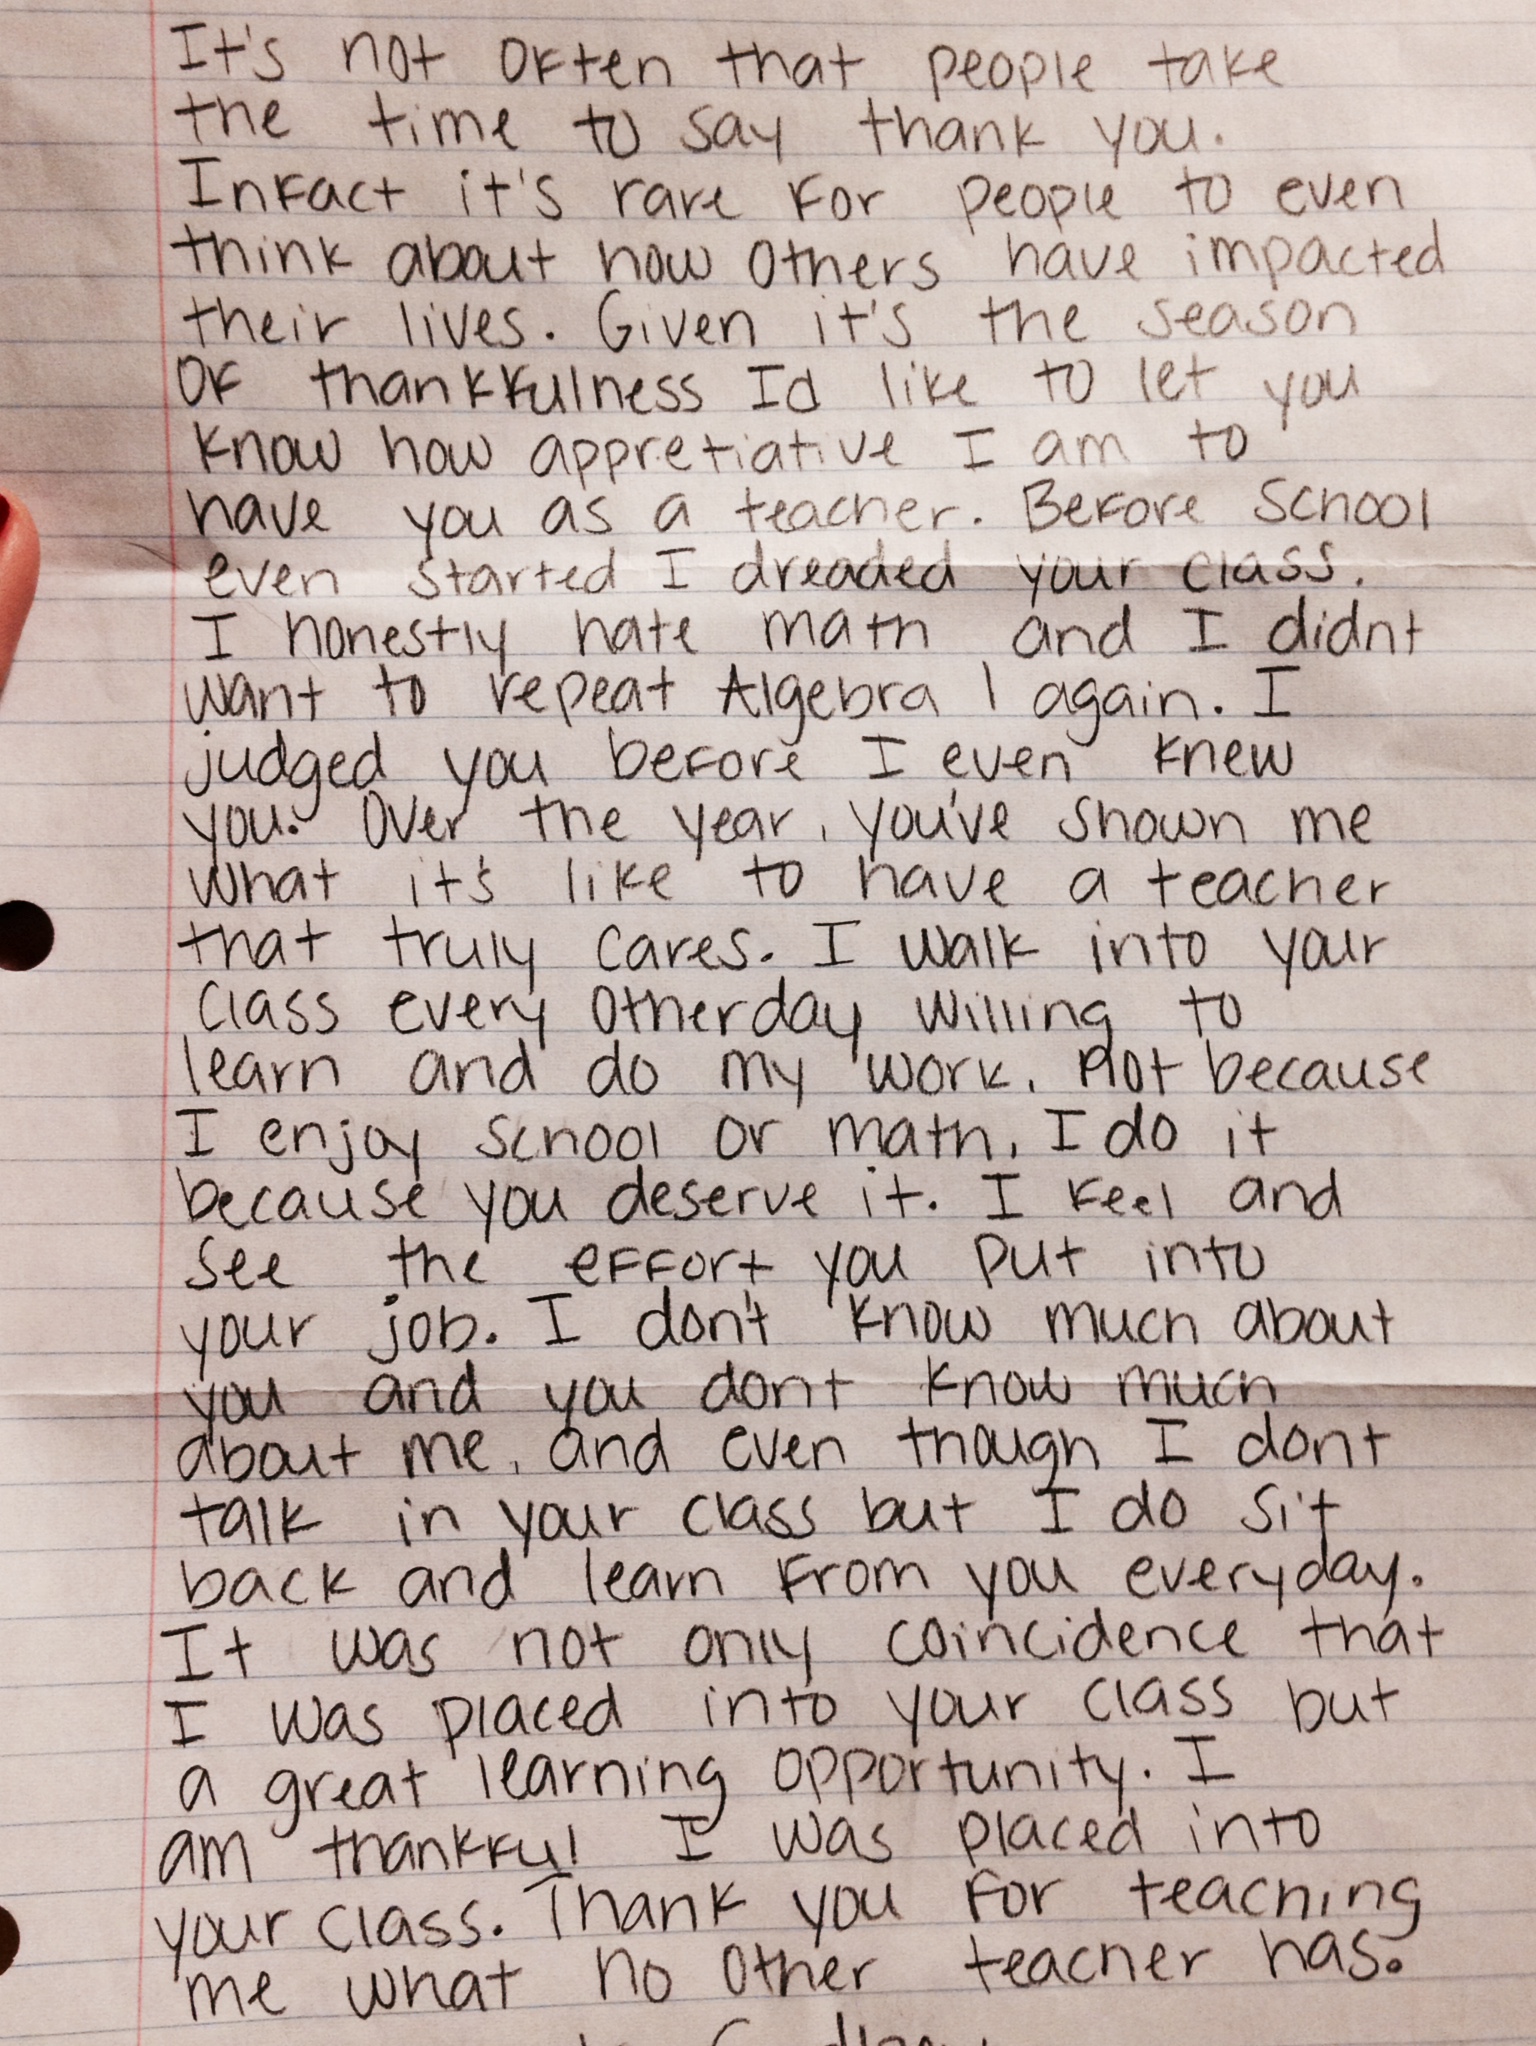 It's not often that people take
the time to say thank you.
Infact it's rare for people to even
think about how others have impacted
their lives. Given it's the season
of thankfulness Id like to let you
know how appretiative I am to
have you as a teacher. Before school
even started I dreaded your class.
I honestly hate math and I didnt
want to repeat Algebra 1 again. I
judged you before I even knew
you. Over the year, you've shown me
what it's like to have a teacher
that truly cares. I walk into your
class every otherday willing to
learn and do my work. Not because
I enjoy school or math, I do it
because you deserve it. I feel and
see the effort you put into
your job. I don't know much about
you and you dont know much
about me, and even though I dont
talk in your class but I do sit
back and learn from you everyday.
It was not only coincidence that
I was placed into your class but
a great learning opportunity. I
am thankful I was placed into
your class. Thank you for teaching
me what no other teacher has.